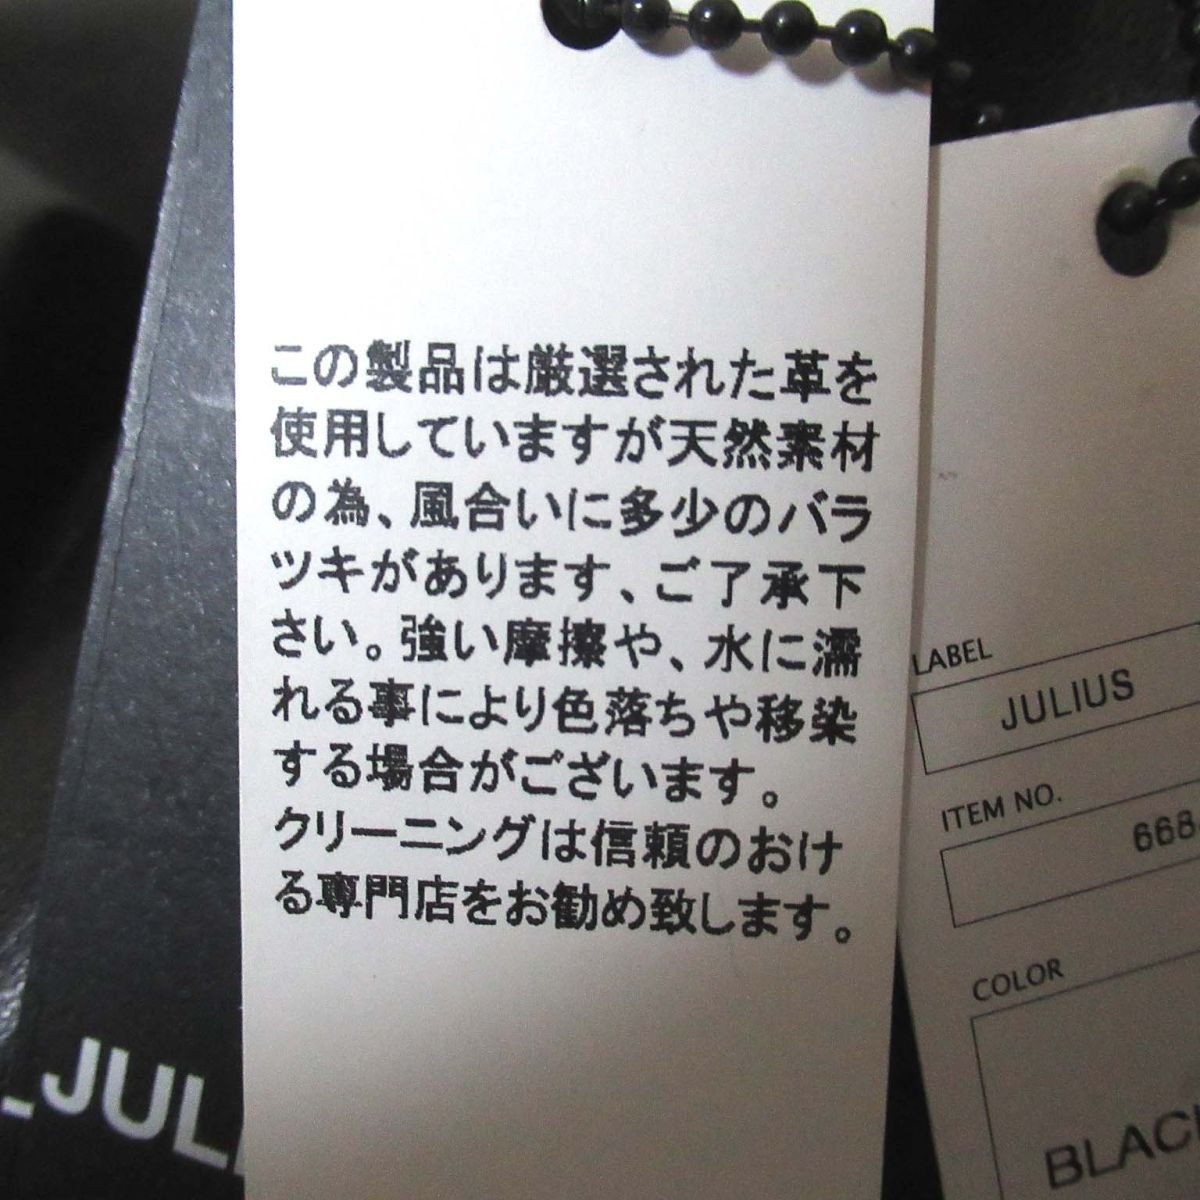 この製品は厳選された革を
使用していますが天然素材
の為、風合いに多少のバラ
ツキがあります、ご了承下
さい。強い摩擦や、水に濡
れる事により色落ちや移染
する場合がございます。
クリーニングは信頼のおけ
る専門店をお勧め致します。
LABEL
JULIUS
ITEM NO.
668
COLOR
BLACK
_JUL